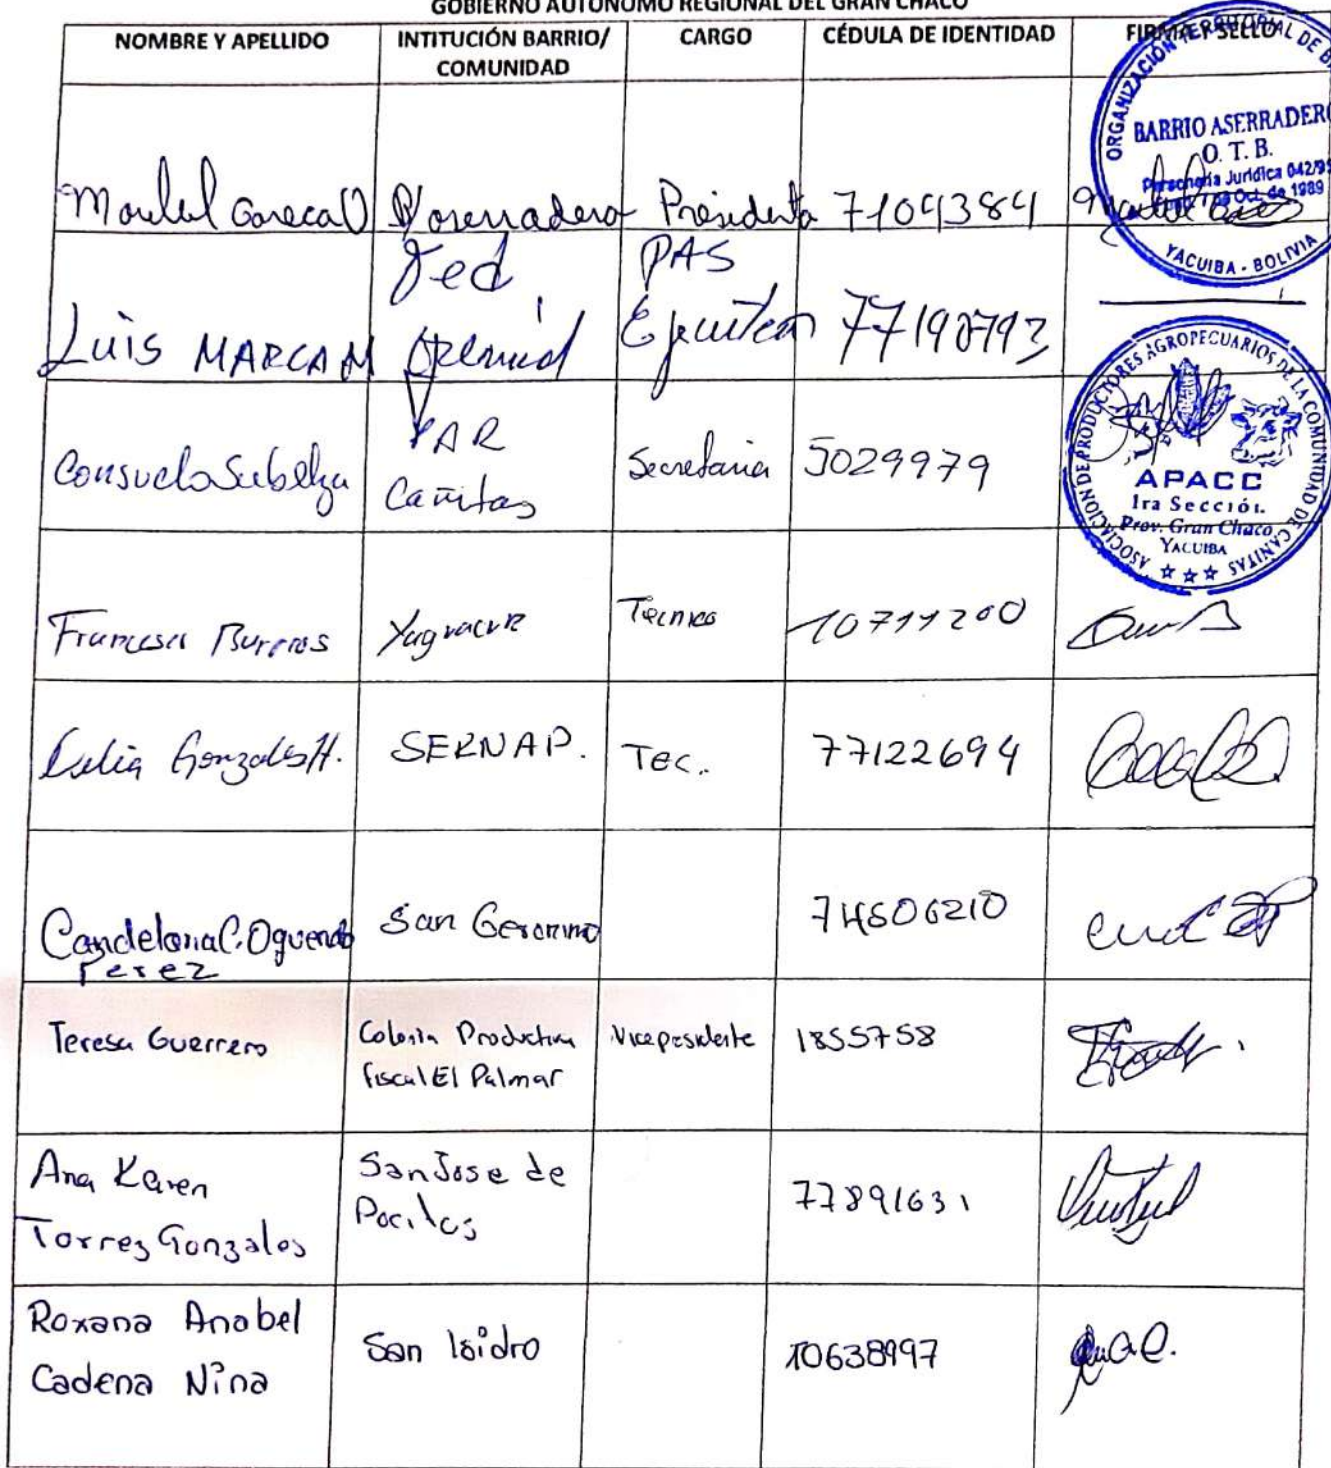 GOBIERNO AUTÓNOMO REGIONAL DEL GRAN CHACO
NOMBRE Y APELLIDO
INTITUCIÓN BARRIO/
COMUNIDAD
CARGO
CÉDULA DE IDENTIDAD
FIRMA Y SELLO
Presidenta
71041384
ORGANIZACIÓN TERRITORIAL DE
BARRIO ASERRADERO
O. T. B.
Personería Jurídica 042/95
Oct. de 1989
YACUIBA - BOLIVIA
Luis MARCA M
Fed
PAS
77190793
Consuelo Subelza
PAR
Cañitas
Secretaria
5029979
ASOCIACION DE PRODUCTORES AGROPECUARIOS DE LA COMUNIDAD DE CAÑITAS
APACC
1ra Sección
Prov. Gran Chaco
YACUIBA
Yaguacua
Tecnico
10711200
Gonzales H.
SERNAP.
Tec.
77122694
Candelaria C. Oquendo
Perez
San Geronimo
74506210
Teresa Guerrero
Colonia Productiva
fiscal El Palmar
Vicepresidente
1855758
Ana Karen
Torrez Gonzales
San Jose de
Pocitos
77891631
Roxana Anabel
Cadena Nina
San Isidro
10638997